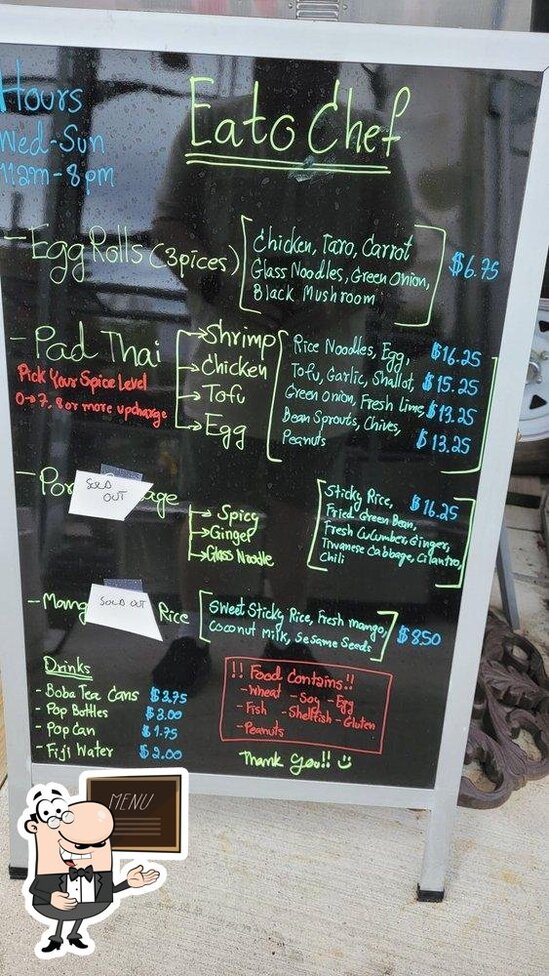 Hours
Wed-Sun
11am-8pm
Eato Chef
- Egg Rolls (3pices)
Chicken, Taro, Carrot
Glass Noodles, Green Onion,
Black Mushroom
$6.75
- Pad Thai
Pick Your Spice Level
0→7, 8 or more upcharge
Shrimp
Chicken
Tofu
Egg
Rice Noodles, Egg,
Tofu, Garlic, Shallot,
Green Onion, Fresh Lime,
Bean Sprouts, Chives,
Peanuts
$16.25
$15.25
$13.25
$13.25
- Por age
SOLD
OUT
Spicy
Ginger
Glass Noodle
Sticky Rice,
Fried Green Bean,
Fresh Cucumber, Ginger,
Tiwanese Cabbage, Cilantro,
Chili
$16.25
- Mang Rice
SOLD OUT
Sweet Sticky Rice, Fresh mango,
Coconut Milk, Sesame Seeds
$8.50
Drinks
- Boba Tea Cans $3.75
- Pop Bottles $3.00
- Pop Can $1.75
- Fiji Water $2.00
!! Food Contains!!
- Wheat - Soy - Egg
- Fish - Shellfish - Gluten
- Peanuts
Thank You!!
MENU